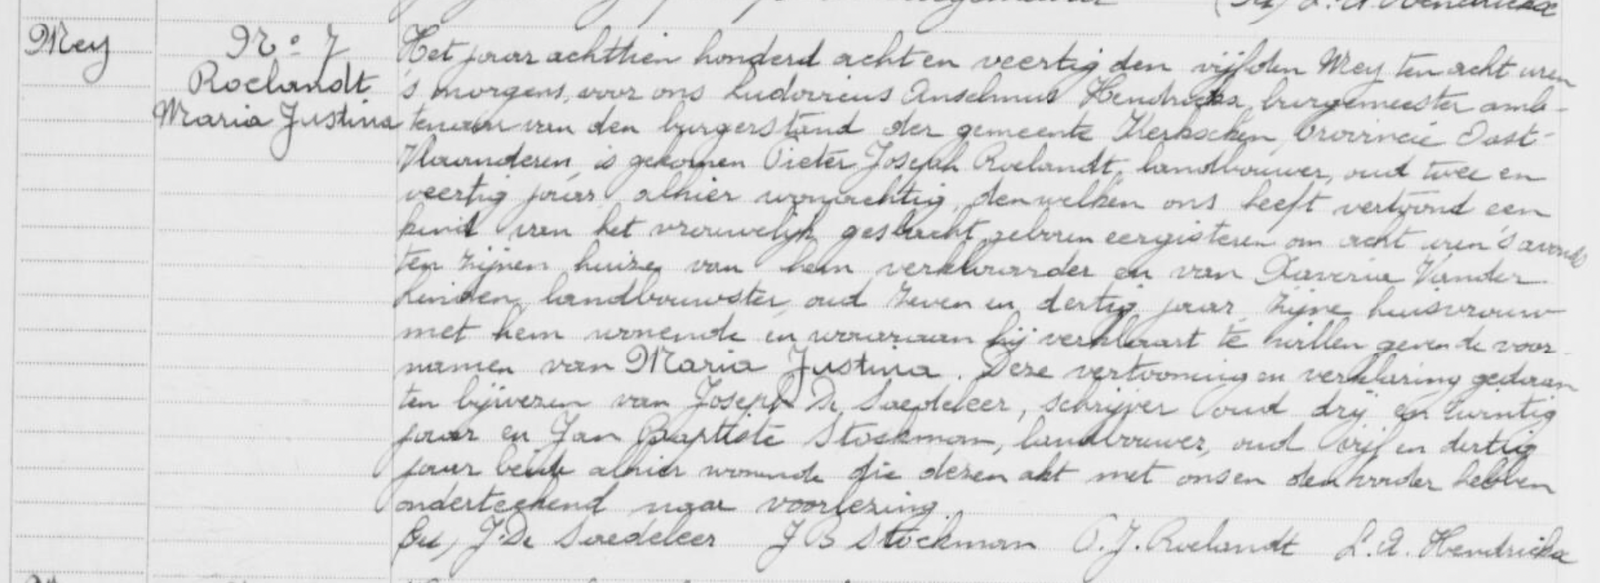 L. A. Hendrickx
Mey
No 7
Roelandt
Maria Justina
Het jaar achttien honderd acht en veertig den vijfden Mey ten acht uren
's morgens, voor ons Ludovicus Anselmus Hendrickx, burgemeester amb-
tenaar van den burgerstand der gemeente Kerksken, Provincie Oost-
Vlaanderen, is gekomen Pieter Joseph Roelandt, landbouwer, oud twee en
veertig jaar, alhier woonachtig, denwelken ons heeft vertoond een
kind van het vrouwelijk geslacht geboren eergisteren om acht uren 's avonds
ten zijnen huize van hem verklaarder en van Xaveria Vander
Linden, landbouwster, oud zeven en dertig jaar, zijne huisvrouw
met hem wonende en waaraan hij verklaart te willen geven de voor-
namen van Maria Justina. Deze vertooning en verklaring gedaan
ten bijwezen van Joseph De Saedeleer, schrijver oud drij en twintig
jaar en Jan Baptiste Stockman, landbouwer, oud vijf en dertig
jaar beide alhier wonende die dezen akt met ons en den vader hebben
onderteekend naar voorlezing.
J. De Saedeleer J B Stockman P. J. Roelandt L. A. Hendrickx